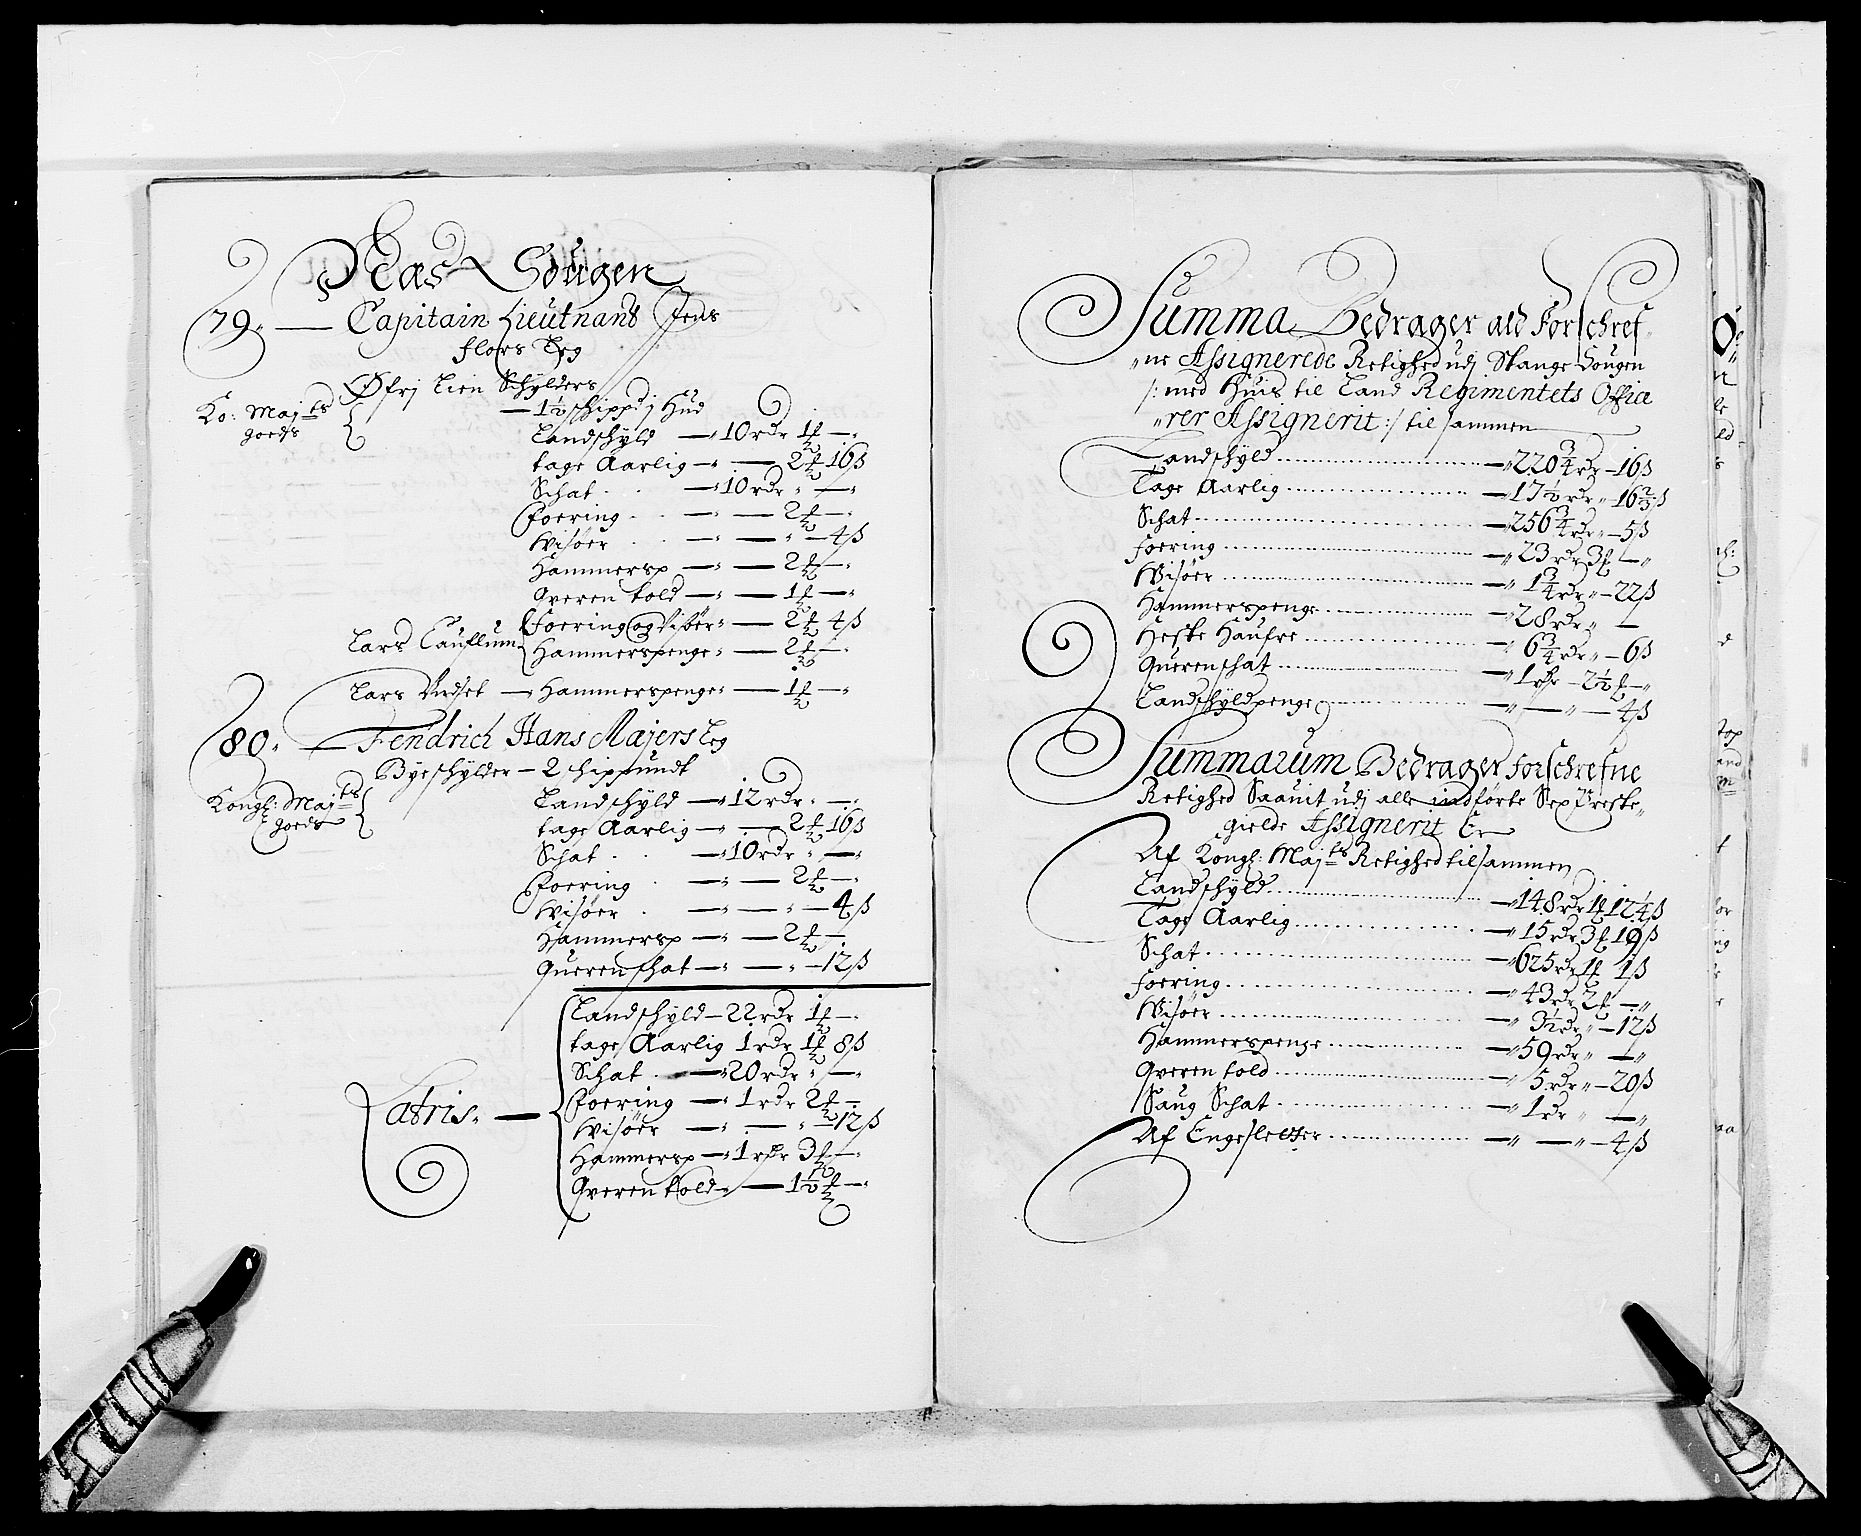 Aas Sougen
79. — Capitain Lieutnandt Jens
Flors Leg
Øfri Lien Schylder
— 1½ schippd j Hud
Ko: Maj:ts
goeds
Landschyld — 10 rdr 1 ℔ —
tage Aarlig — — 2 ℔ 16 ß
Schat — 10 rdr — —
Foering — — 2 ℔ —
Wisøer — — — 4 ß
Hammersp — — 2 ℔ —
Qveren told — — 1 ℔ —
Lars
Foering og Wisøer — 2 ℔ 4 ß
Hammerspenge — — 2 ℔ —
Lars — Hammerspenge — — 1 ℔ —
80. — Fendrich Hans Majers Leg
Byeschylder — 2 schippundt
Kongl: Maj:ts
goeds
Landschyld — 12 rdr — —
tage Aarlig — — 2 ℔ 16 ß
Schat — 10 rdr — —
Foering — — 2 ℔ —
Wisøer — — — 4 ß
Hammersp — — 2 ℔ —
Querenschat — — — 12 ß
Latris —
Landschyld — 22 rdr 1 ℔ —
tage Aarlig 1 rdr 1 ℔ 8 ß
Schat — 20 rdr — —
Foering — 1 rdr 2 ℔ —
Wisøer — — — 12 ß
Hammersp — 1 rdr 3 ℔ —
Qveren told — — 1½ ℔ —
Summa Bedrager ald Forschref
ne Assignerede Retighed udj Stange Sougen
/: med Huis til Land Regimentets Officie
rer Assignerit :/ til sammen
Landschyld — 220¾ rdr — 16 ß
Tage Aarlig — 17½ rdr — 16⅔ ß
Schat — 256¾ rdr — 5 ß
Foering — 23 rdr 3 ℔ —
Wisøer — 1¾ rdr — 22 ß
Hammerspenge — 28 rdr —
Heste Haufre — 6¾ rdr — 6 ß
Querenschat — 1 rdr — 2½ ℔ —
Landschyldpenge — — — 4 ß
Summarum Bedrager forschrefne
Retighed Saauit udj alle indførte Sex Preste-
gielde Assignerit Er
Af Kongl: Maj:ts Retighed tilsammen
Landschyld — 148 rdr 1 ℔ 12¼ ß
Tage Aarlig — 15 rdr 3 ℔ 19 ß
Schat — 625 rdr 1 ℔ 1 ß
Foering — 43 rdr 2 ℔ —
Wisøer — 3½ rdr — 12 ß
Hammerspenge — 59 rdr —
Qveren told — 5 rdr — 20 ß
Saug Schat — 1 rdr —
Af Engesletter — — — 4 ß